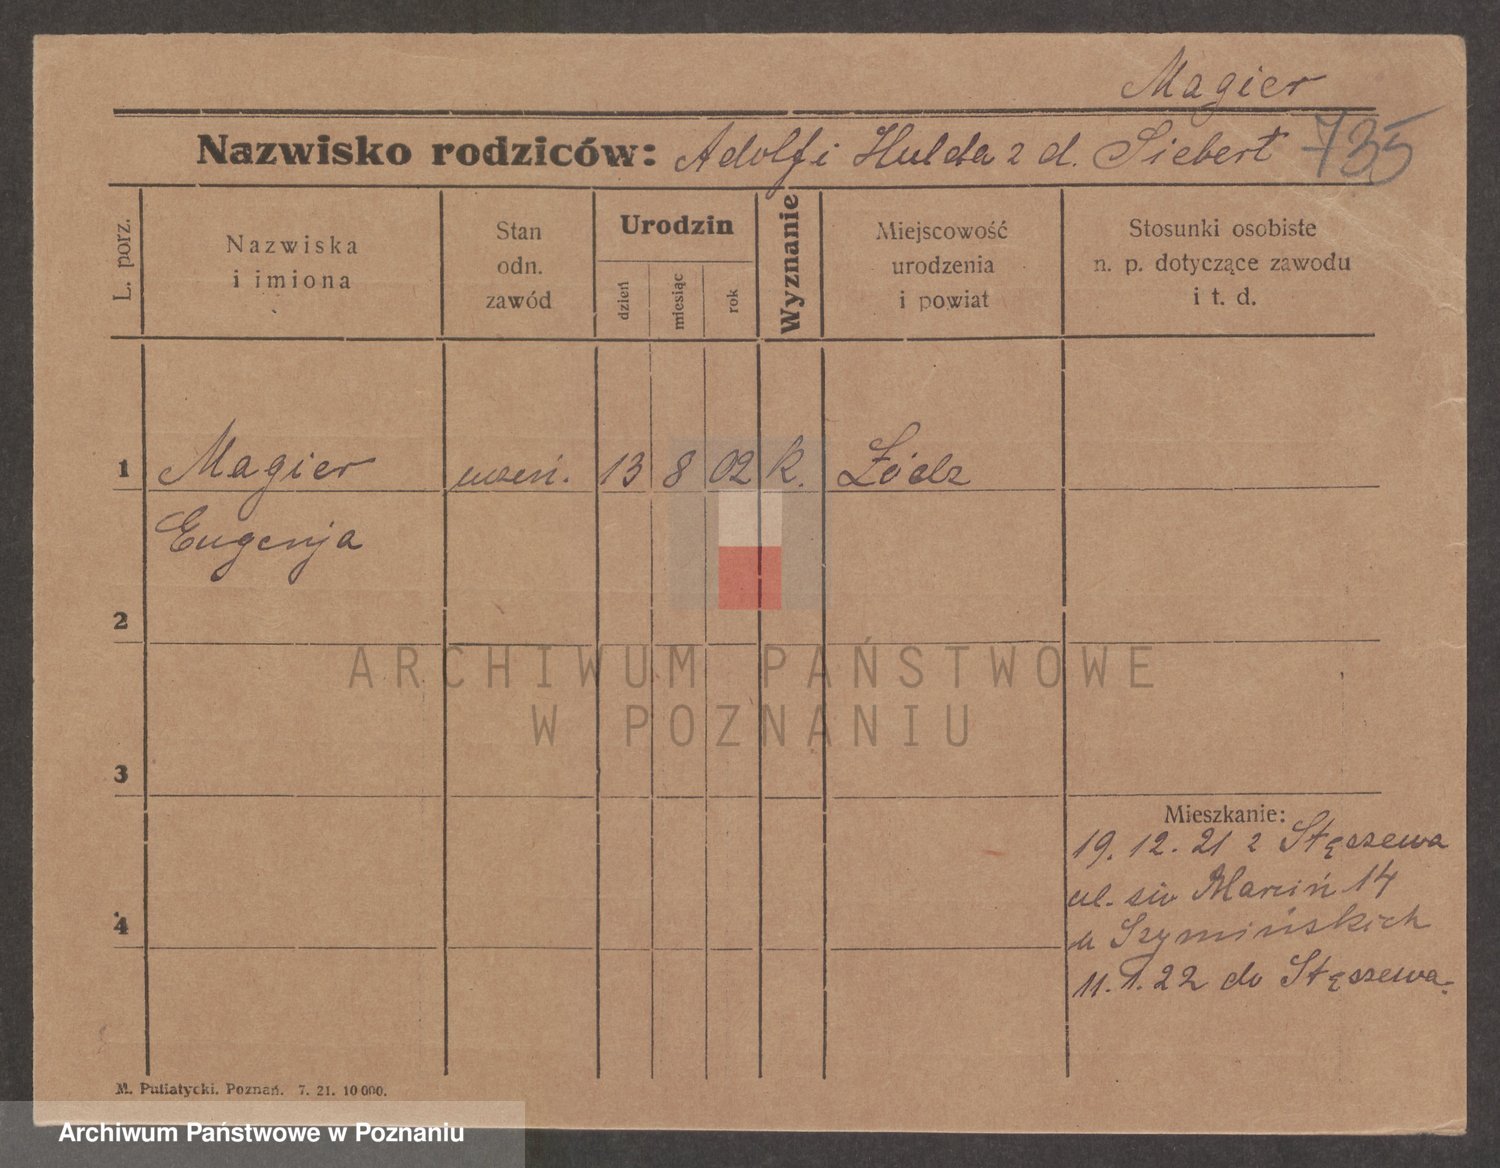 Magier
Nazwisko rodziców: Adolf i Hulda z d. Siebert 735
L. porz.
Nazwiska
i imiona
Stan
odn.
zawód
Urodzin
dzień
miesiąc
rok
Wyznanie
Miejscowość
urodzenia
i powiat
Stosunki osobiste
n. p. dotyczące zawodu
i t. d.
1 Magier uczeń. 13 8 02 k. Łódz
Eugenja
2
ARCHIWUM PAŃSTWOWE
W POZNANIU
3
Mieszkanie:
19. 12. 21 z Stęszewa
ul. św Marcin 14
4
u Szymińskich
11. 1. 22 do Stęszewa.
M. Putiatycki. Poznań. 7. 21. 10 000.
Archiwum Państwowe w Poznaniu